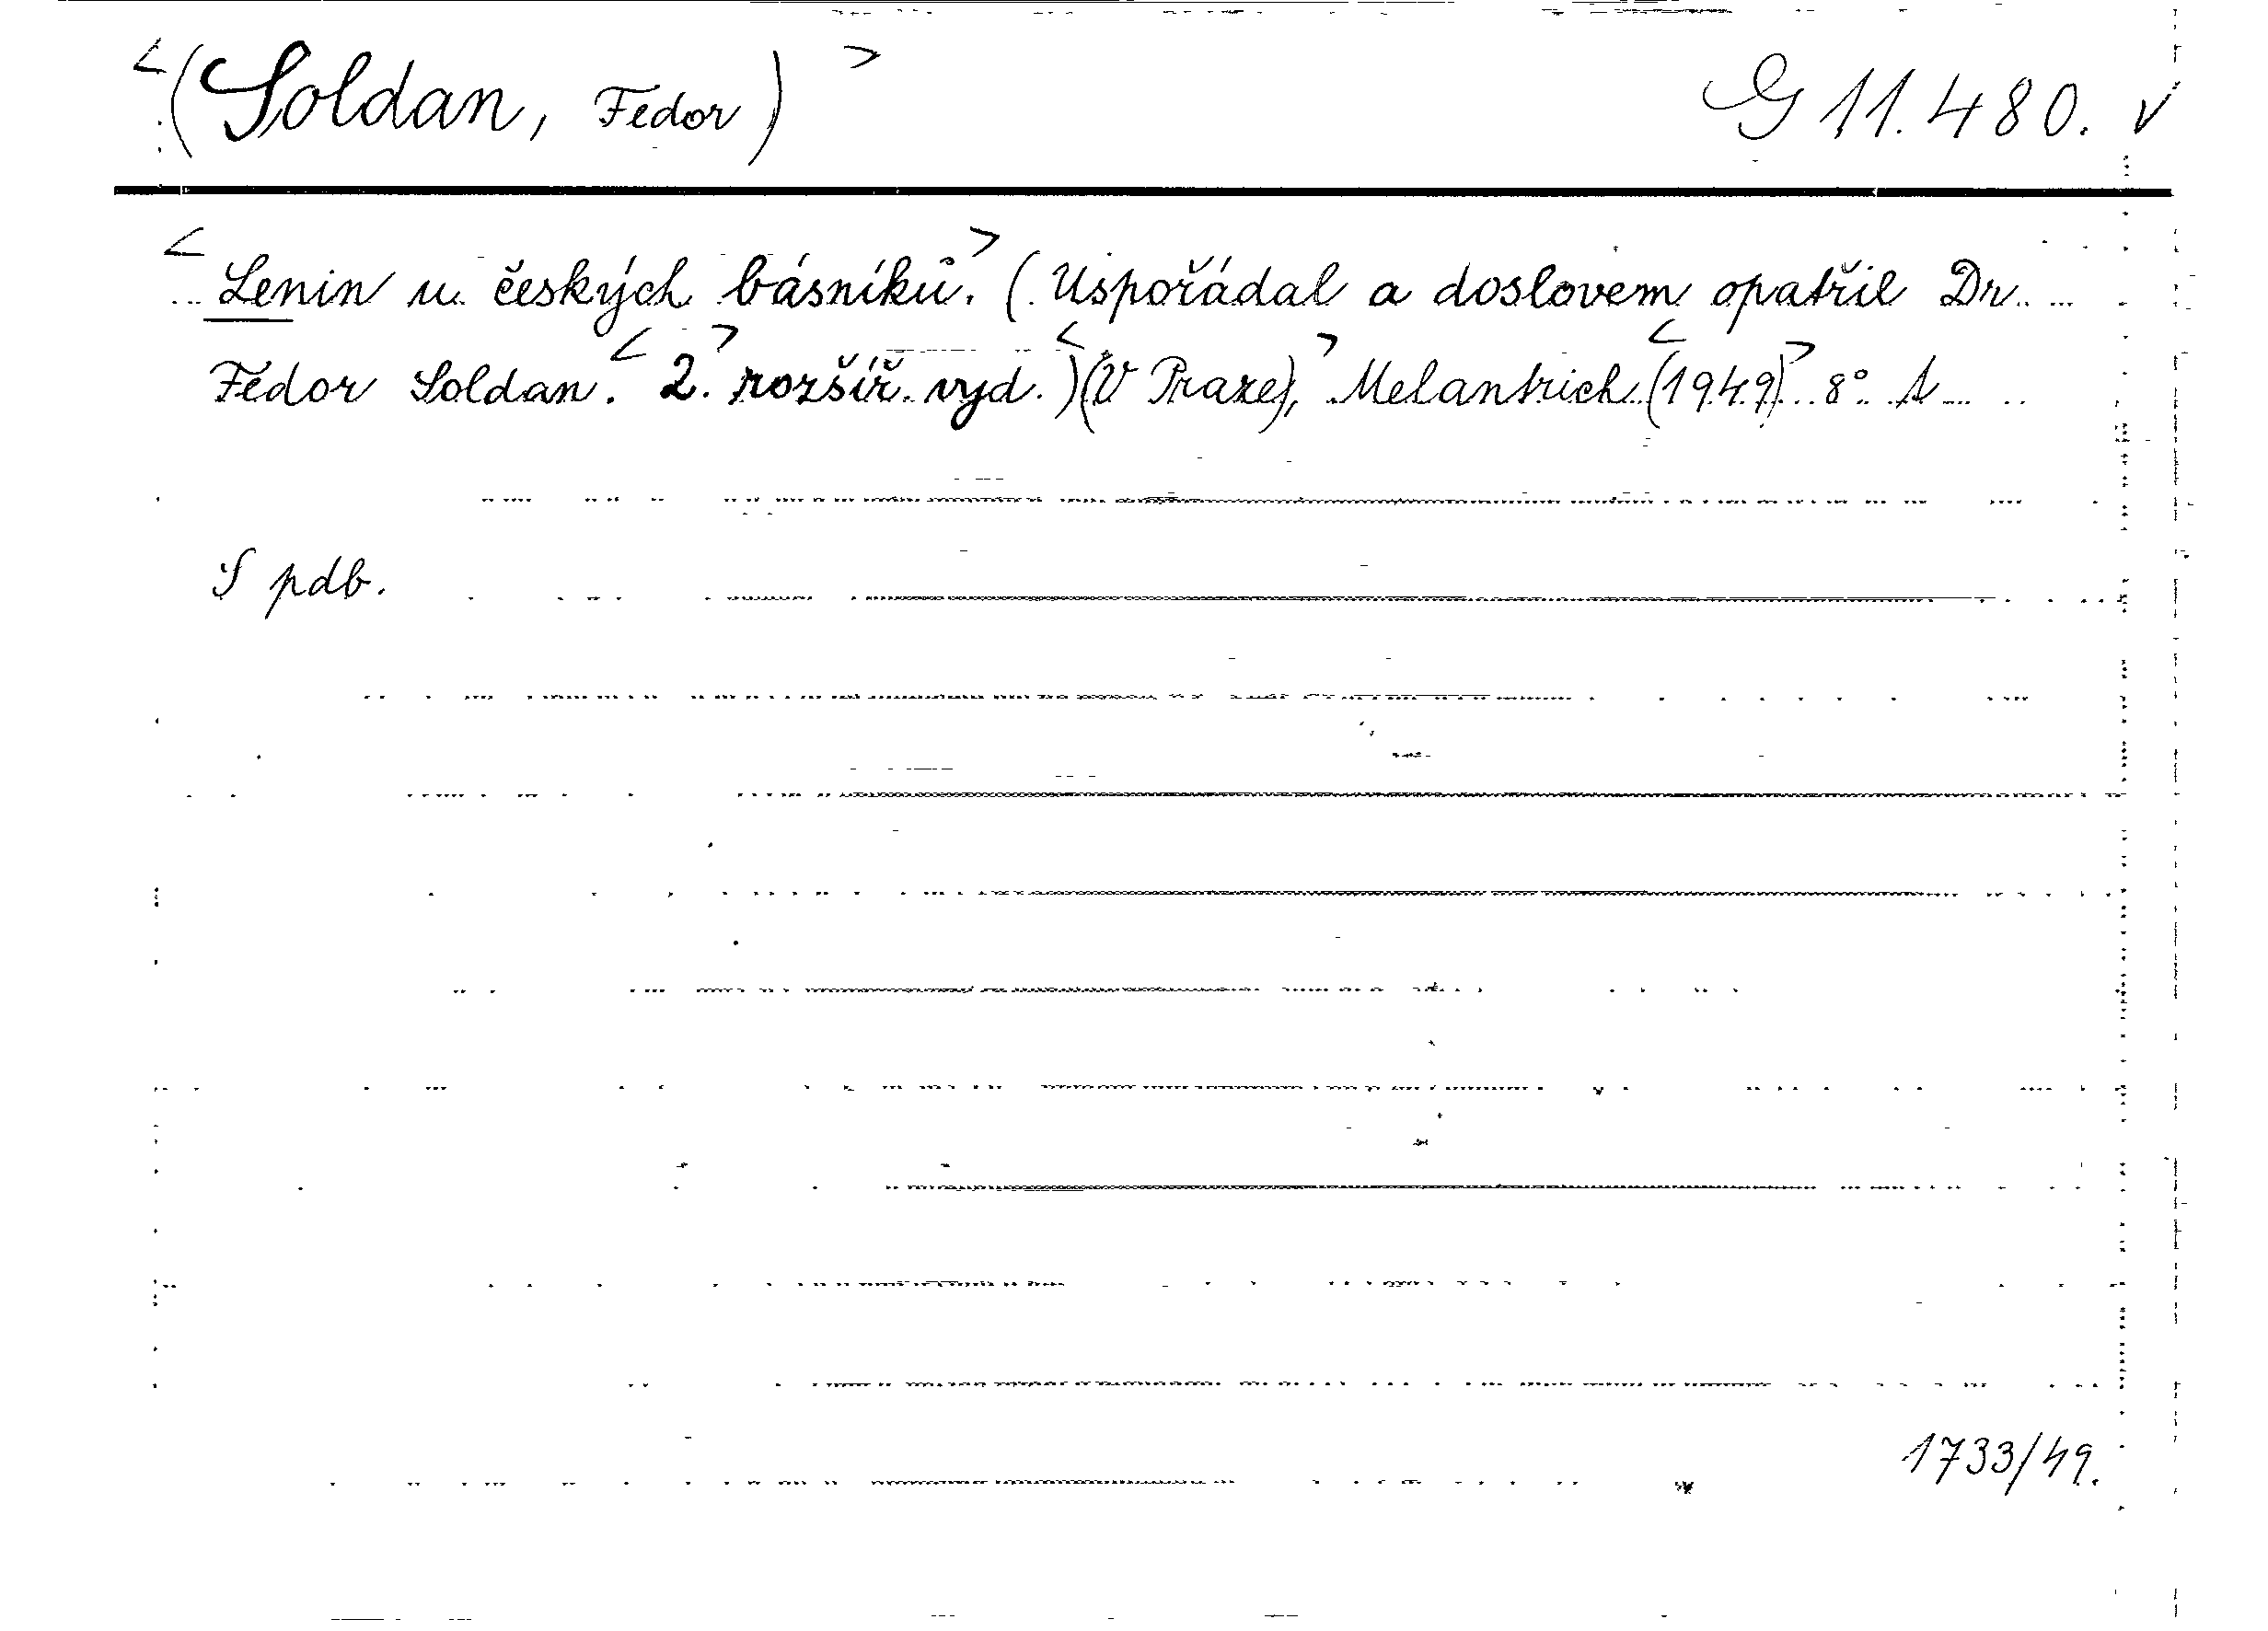 <(Soldan, Fedor)> G 11.480. v
<Lenin u českých básníků.> (Uspořádal a doslovem opatřil Dr.
Fedor Soldan. <2.> rozšíř. vyd.) <(V Praze),> Melantrich <(1949)> 8°
S pdb.
1733/49.